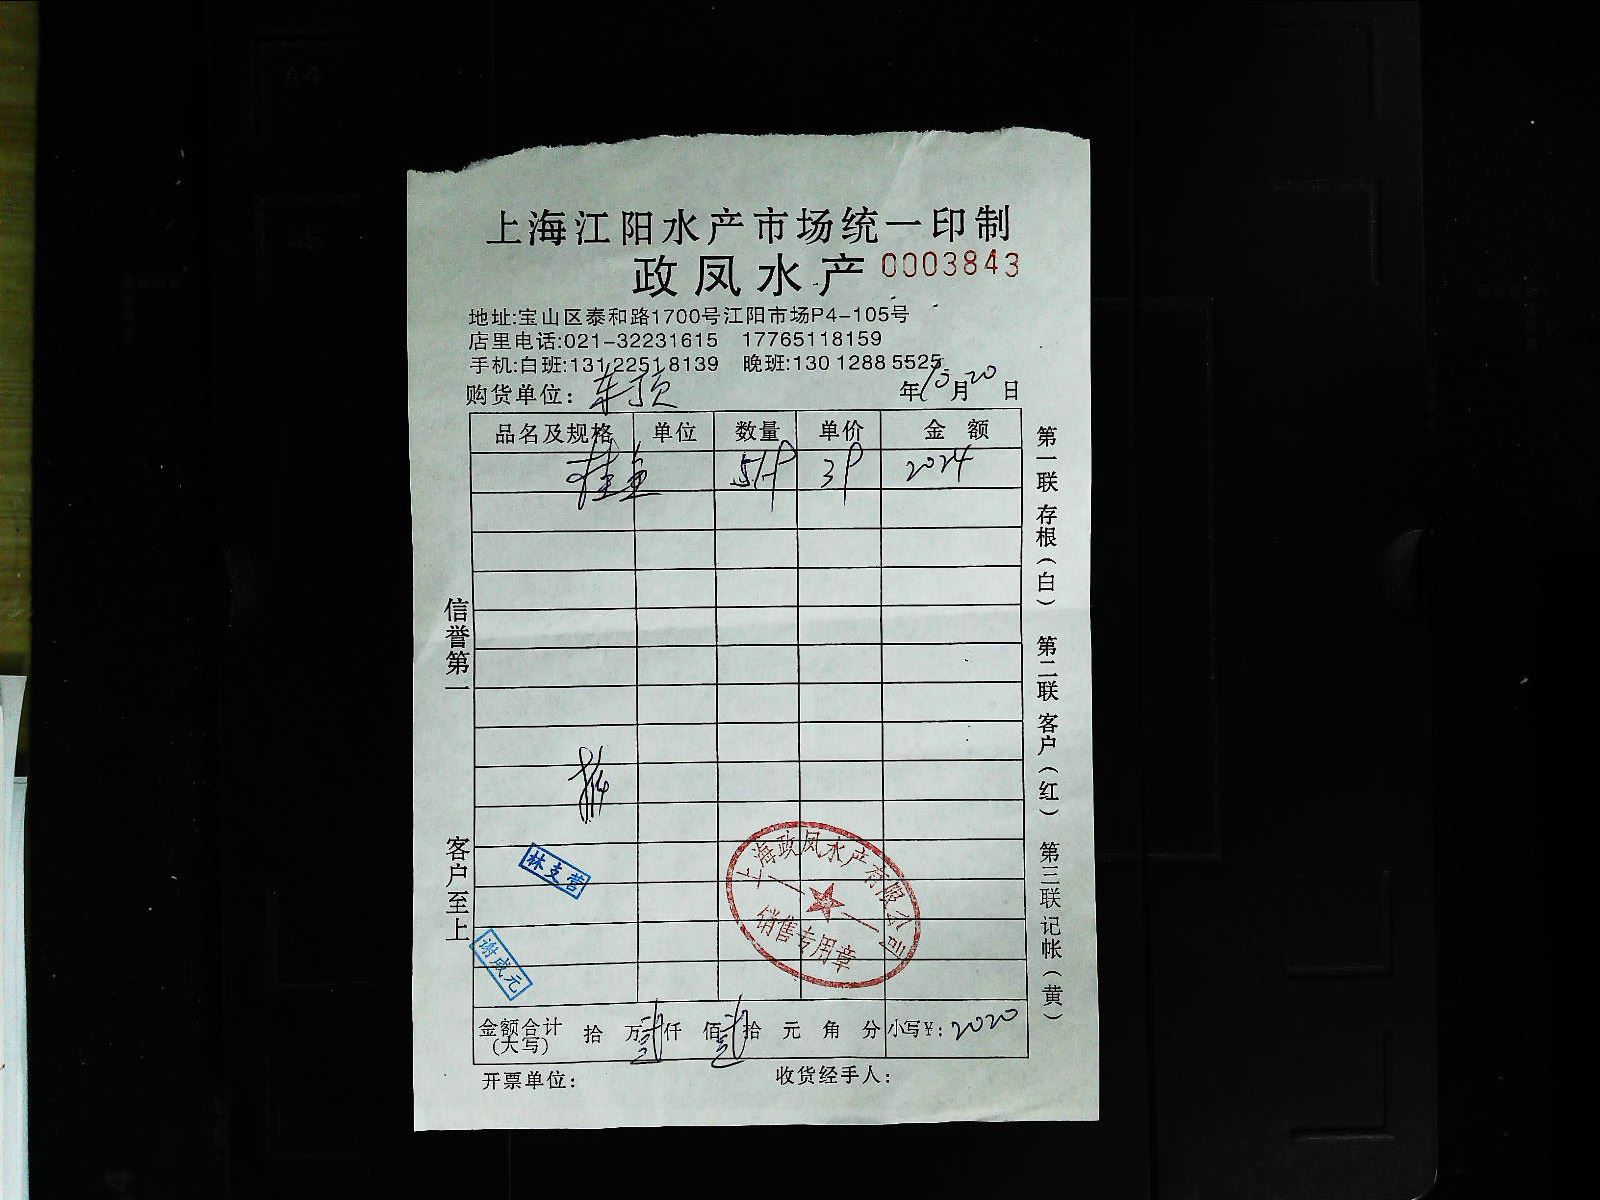 上海江阳水产市场统一印制
政凤水产 0003843
地址:宝山区泰和路1700号江阳市场P4-105号
店里电话:021-32231615 17765118159
手机:白班:131 2251 8139 晚班:130 1288 5525
购货单位: 年10月20日
品名及规格 单位 数量 单价 金额
桂鱼 2024
第一联 存根(白) 第二联 客户(红) 第三联 记帐(黄)
信誉第一 客户至上
林支营
谢成元
上海政凤水产有限公司
销售专用章
金额合计(大写) 拾 万贰仟 佰贰拾 元 角 分 小写¥:2020
开票单位: 收货经手人: